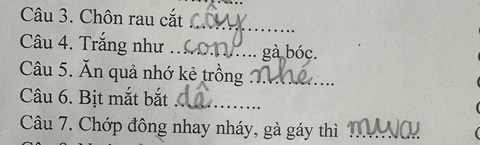 Câu 3. Chôn rau cắt cây
Câu 4. Trắng như con gà bóc.
Câu 5. Ăn quả nhớ kẻ trồng nhé
Câu 6. Bịt mắt bắt dê
Câu 7. Chớp đông nhay nháy, gà gáy thì mưa